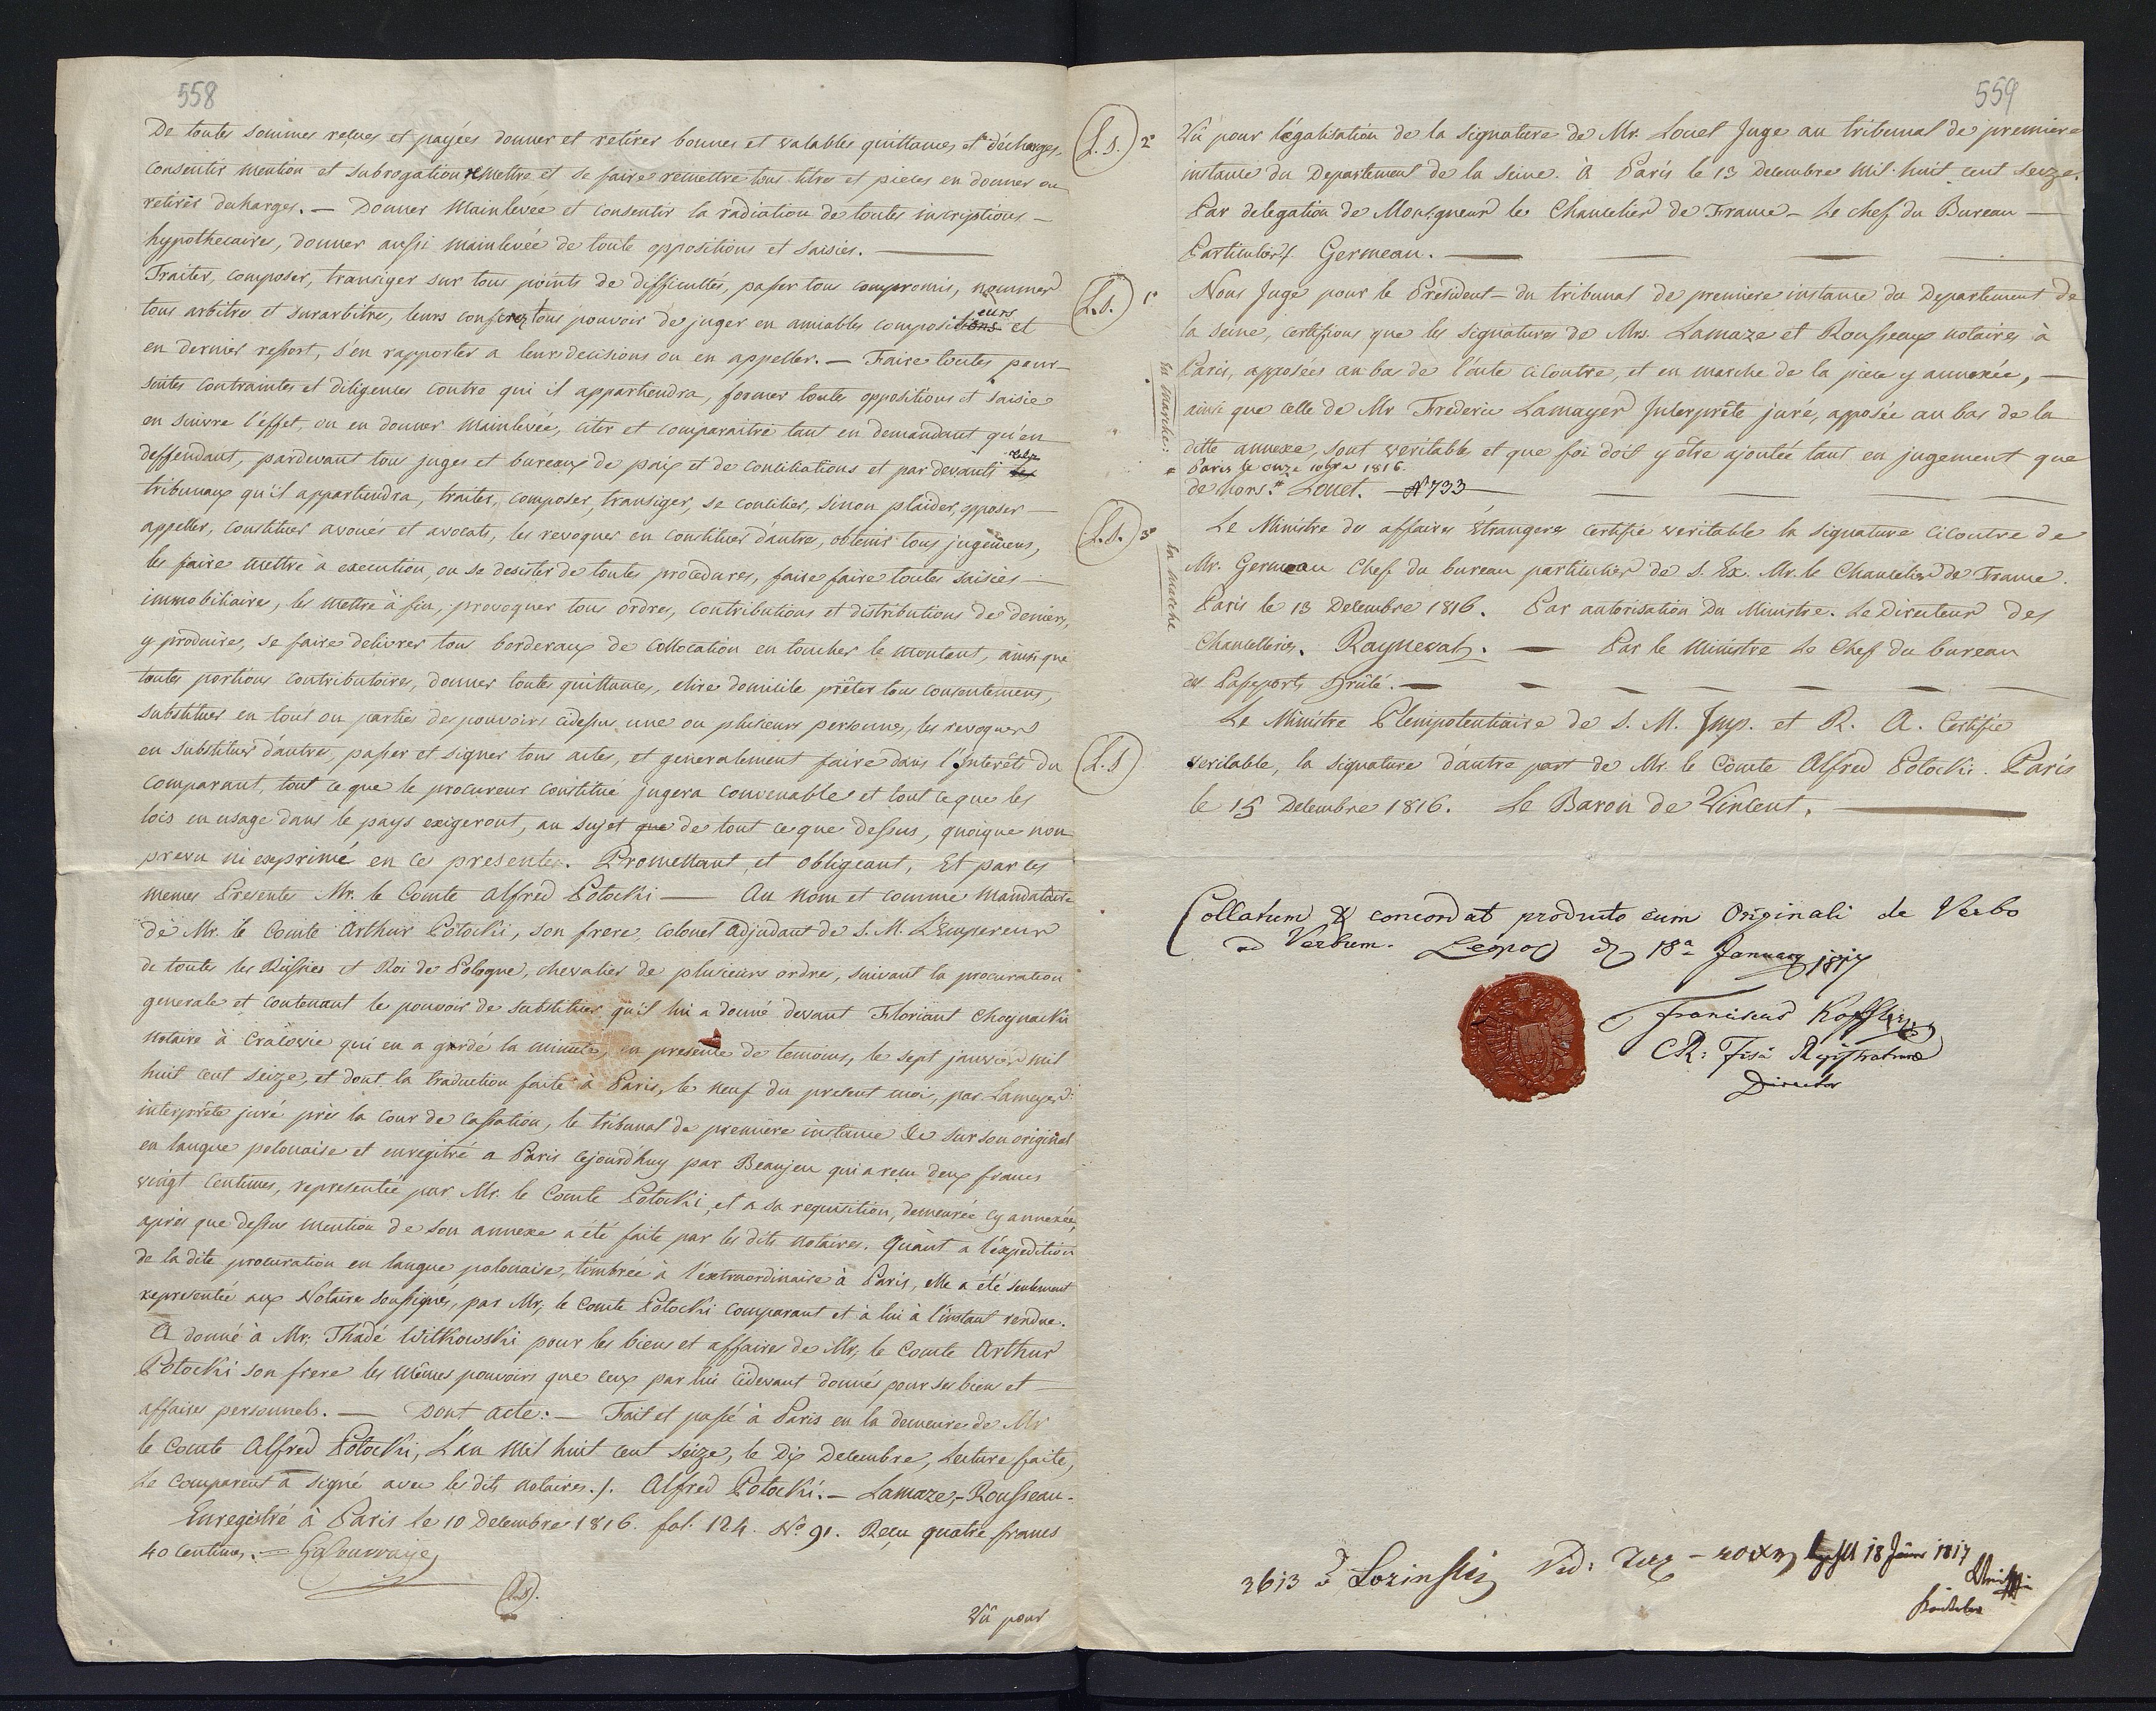 558
De toutes sommes reçues et payées donner et retirer bonnes et valables quittances et décharges,
consentir mention et subrogation remettre et se faire remettre tous titres et pieces en donner ou
retirer decharges. — Donner Mainlevée et consentir la radiation de toutes inscriptions —
hypothecaires, donner aussi mainlevée de toute oppositions et saisies. —
Traiter, composer, transiger sur tous points de difficultés, passer tous compromis, nommer
tous arbitres et surarbitres, leurs conferer tous pouvoir de juger en amiables compositeurs et
en dernier ressort, s'en rapporter a leurs decisions ou en appeller. — Faire toutes pour-
suites contraintes et diligences contre qui il appartiendra, former toute oppositions et saisie
en suivre l'effet, ou en donner mainlevée, citer et comparaitre tant en demandant qu'en
deffendant, pardevant tous juges et bureaux de paix et de conciliations et par devant
tribunaux qu'il appartiendra, traiter, composer, transiger, se concilier, sinon plaider, opposer —
appeller, constituer avoués et avocats, les revoquer en constituer d'autres, obtenir tous jugemens,
les faire mettre à execution, ou se desister de toutes procedures, faire faire toutes saisies —
immobiliaires, les mettre à fin, provoquer tous ordres, contributions et distributions de deniers,
y produire, se faire delivrer tous borderaux de collocation en toucher le montant, ainsi que
toutes portions contributoires, donner toute quittances, elire domicile prêter tous consentemens,
substituer en tout ou parties des pouvoirs cidessus une ou plusieurs personnes, les revoquer
en substituer d'autres, passer et signer tous actes, et generalement faire dans l'Interêts du
comparant, tout ce que le procureur constitué jugera convenable et tout ce que les
lois en usage dans le pays exigeront, au sujet que de tout ce que dessus, quoique non
prevu ni exprimé en ces presentes. Promettant et obligeant, Et par ces
memes Presentes Mr. le Comte Alfred Potocki — Au nom et comme mandataire
de Mr. le Comte Arthur Potocki, son frere, Colonel Adjudant de S. M. L'Empereur
de toutes les Russies et Roi de Pologne, chevalier de plusieurs ordres, suivant la procuration
generale et contenant le pouvoir de substituer qu'il lui a donné devant Floriant Choynacki
notaire à Cracovie qui en a gardé la minute, en presence de temoins, le sept janvier mil
huit cent seize, et dont la traduction faite à Paris, le neuf du present mois, par Lamayer
interprête juré près la cour de cassation, le tribunal de premiere instance &c sur son original
en langue polonaise et enregitré a Paris cejourd'huy par Beaujeu qui a reçu deux francs
vingt centimes, representée par Mr. le Comte Potocki, et a sa requisition, demeurée cy annexée,
après que dessus mention de son annexe a été faite par les dits notaires. Quant a l'expedition
de la dite procuration en langue polonaise, timbrée à l'extraordinaire à Paris, elle a été seulement
representée aux Notaire soussignés, par Mr, le Comte Potocki comparant et à lui à l'instant rendue.
A donné à Mr; Thadé Witkowski pour les biens et affaires de Mr, le Comte Arthur
Potocki son frere les mêmes pouvoirs que ceux par lui cidevant donnés pour ses biens et —
affaires personnels. — Dont acte: — Fait et passé à Paris en la demeure de Mr
le Comte Alfred Potocki, L'an Mil huit cent seize, le Dix Decembre, Lecture faite,
Le comparent a signé avec les dits notaires ./. Alfred Potocki. — Lamaze, — Rousseau.
Enregistré à Paris le 10 Decembre 1816. fol. 124. No 91. Reçu quatre francs
40 centimes. —
(L.S).
Vû pour
559
(L.S.) 2°
Vû pour légalisation de la signature de Mr. Louet Juge au tribunal de premiere
instance du Departement de la Seine. à Paris le 13 Decembre mil huit cent seize.
Par delegation de Monsigneur le Chancelier de France — Le chef du Bureau —
Particulier ./. Germeau. —
(L.S.) 1°
Nous Juge pour le Président — du tribunal de premiere instance du Departement de
la seine, certifions que les signatures de Mrs. Lamaze et Rousseaux notaires à
Paris, apposées au bas de l'acte cicontre, et en marche de la piece y annexée, —
ainsi que celle de Mr Frederic Lamayer Interprête juré, apposée au bas de la
ditte annexe, sont veritable et que foi doit y être ajoutée tant en jugement que
En marche:
* Paris le onze 10bre 1816.
de hors.* Louet. — N 733 —
(L.S.) 3°
Le Ministre des affaires étrangeres certifie veritable la signature cicontre de
Mr. Germeau Chef du bureau particulier de S. Ex. Mr. le Chancelier de France.
En marche
Paris le 13 Decembre 1816. Par autorisation du Ministre. Le Directeur des
Chancelleries. Rayneval. — Par le Ministre Le Chef du bureau
des Passeports Brûlé. —
(L.S)
Le Ministre Plenipotentiaire de S. M. Imp. et R. A. Certifie
veritable, la signature d'autre part de Mr. le Comte Alfred Potocki. Paris
le 15 Decembre 1816. Le Baron de Vincent. —
Collatum & concordat producto cum Originali de Verbo
ad Verbum. Leopol 18a January 1817
Franciscus
CR: Registraturae
Director
3613 Lozinski 18 1817